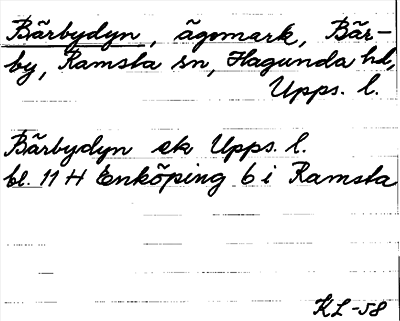 Bärbydyn, ägomark, Bär-
by, Ramsta sn, Hagunda hd,
Upps. l.
Bärbydyn ek Upps. l.
bl. 11 H Enköping 6 i Ramsta
KL-58